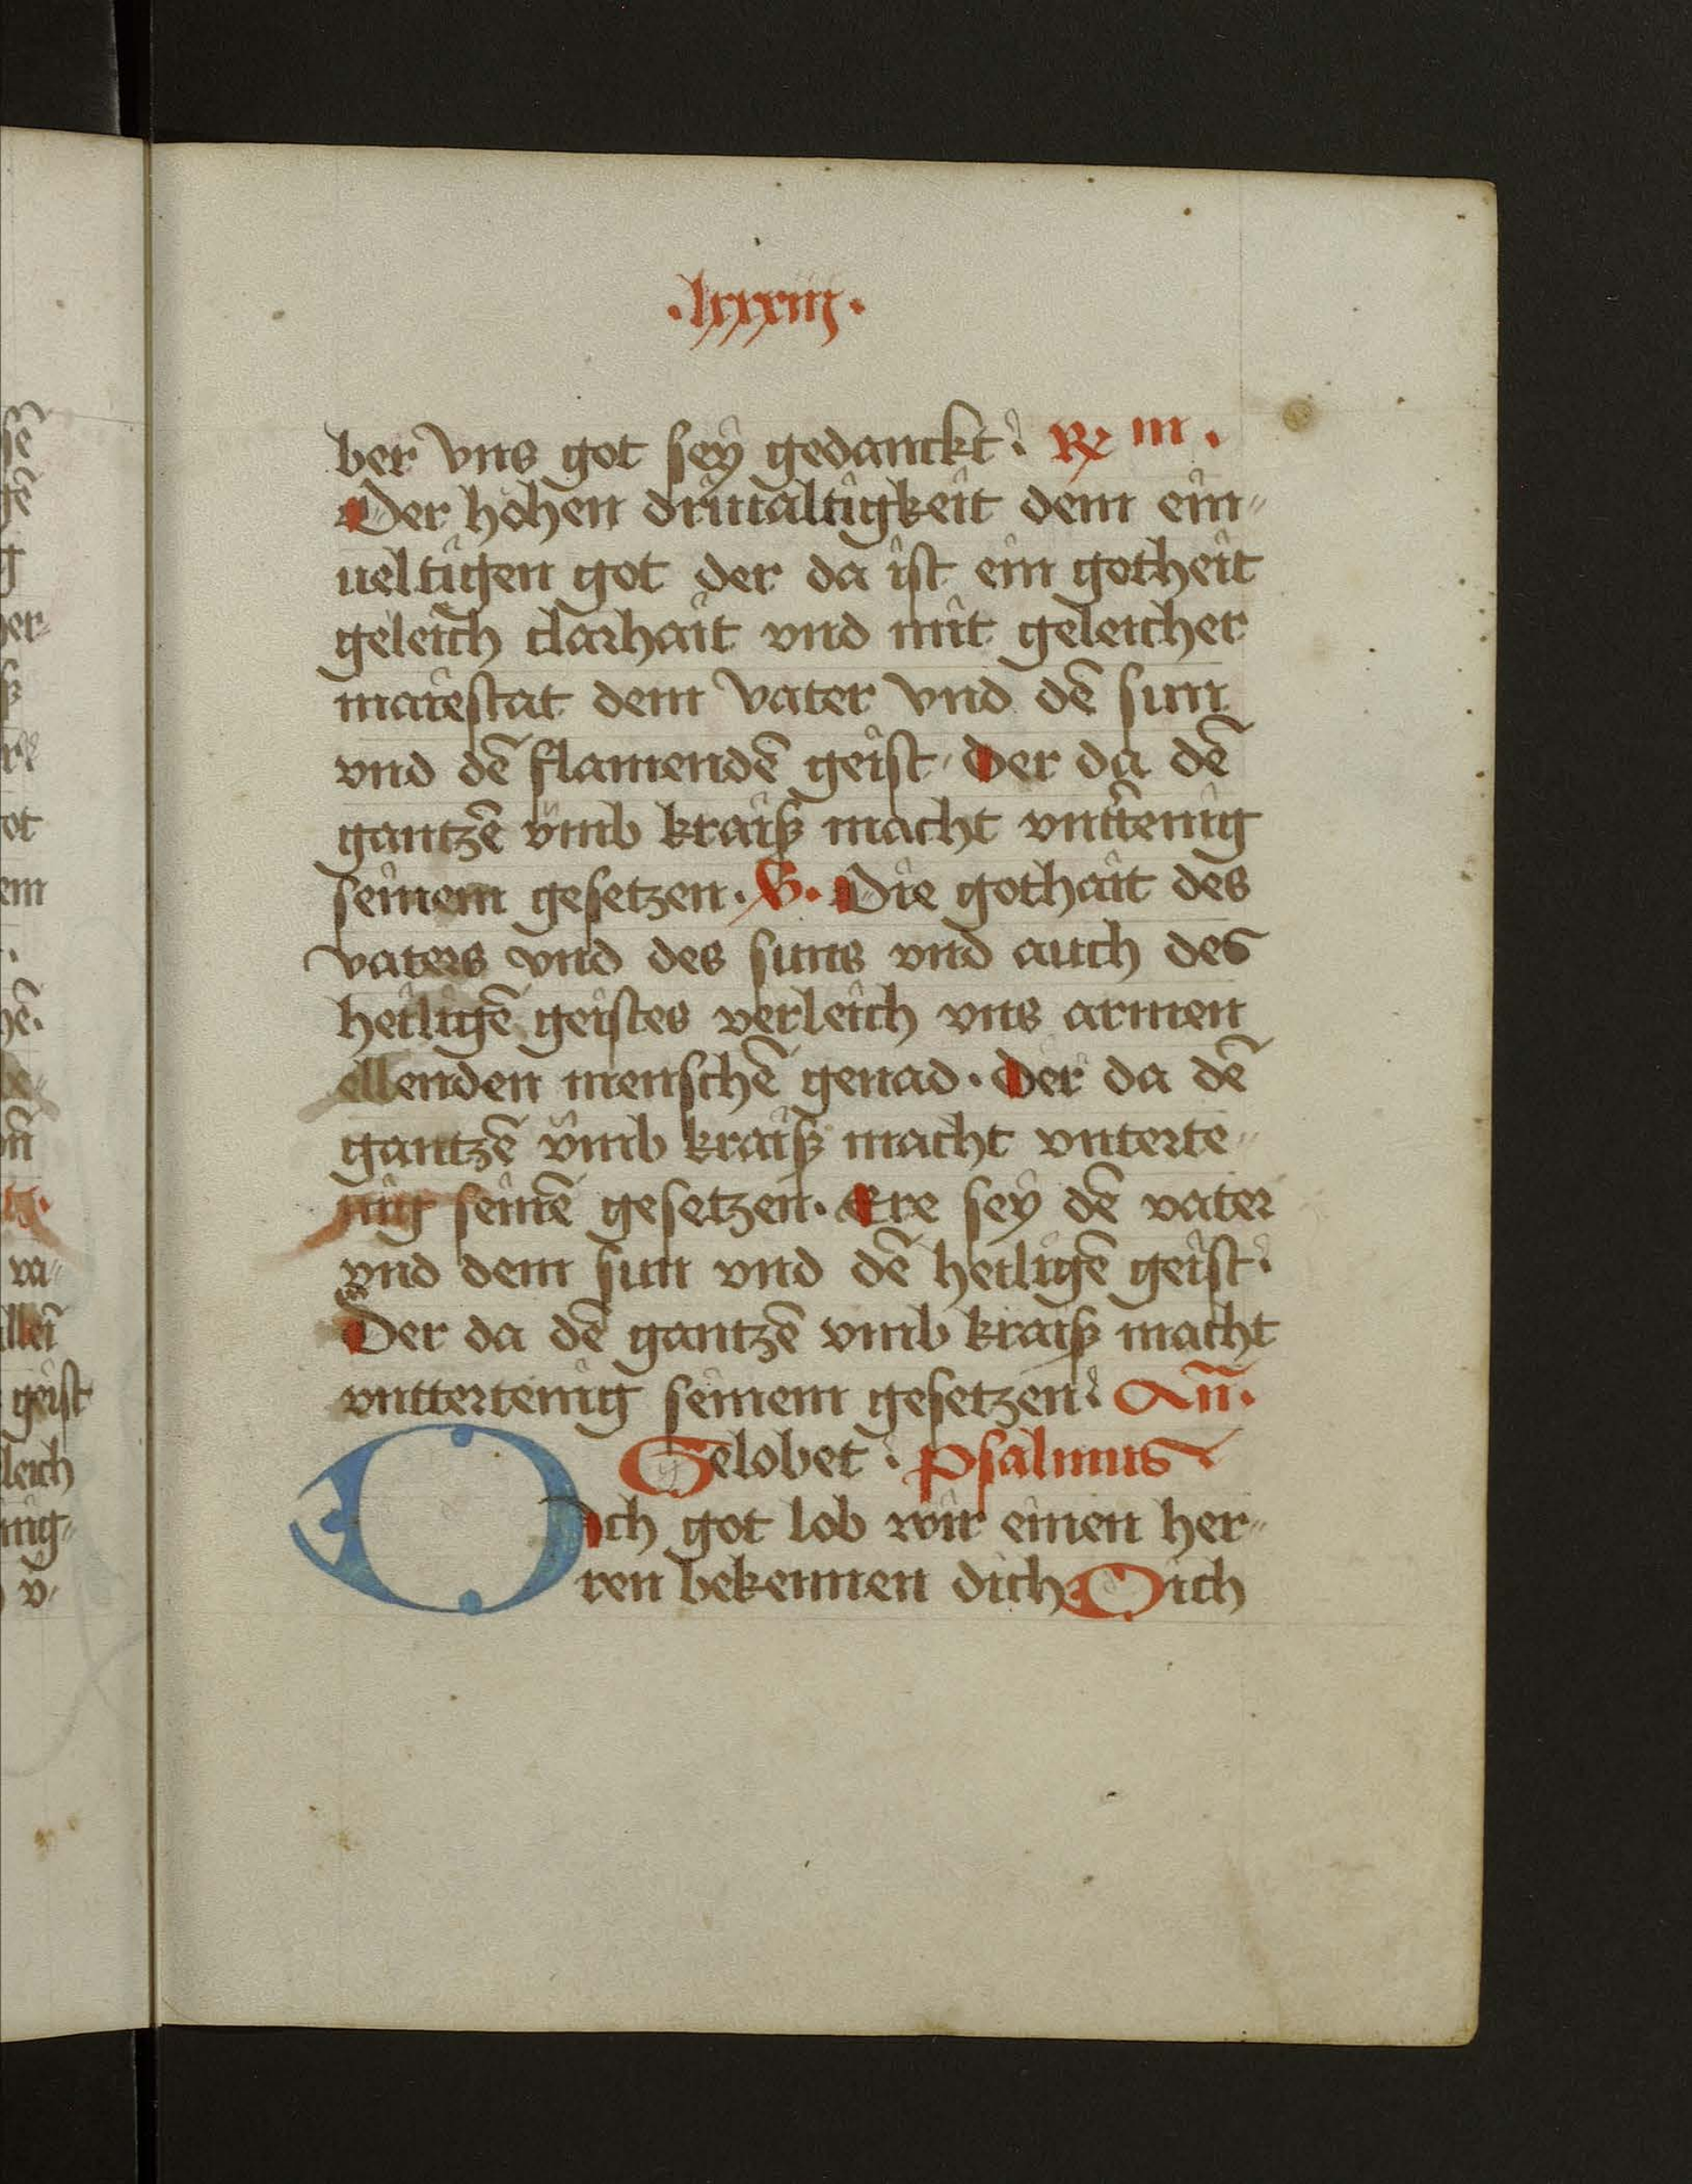 ·lxxxiij·
ber vns got sey gedanckt : ℞ iii .
Der hohen driualtigkeit dem ein〃
ueltigen got der da ist ein gotheit
geleich clarhait vnd mit geleicher
maiestat dem vater vnd dē sun
vnd dē flamendē geist · Der da dē
gantzē vmb kraiß macht vnttenig
seinem gesetzen . V. Die gothait des
vaters vnd des suns vnd auch des
heiligē geistes verleich vns armen
ellenden menschē genad · Der da dē
gantzē vmb kraiß macht vnterte〃
nig seinē gesetzen · Ere sey dē vater
vnd dem sun vnd dē heiligē geist :
Der da dē gantzē vmb kraiß macht
vnttertenig seinem gesetzen : An̄ .
Gelobet : psalmus
Dich got lob wir einen her〃
ren bekennen dich Dich